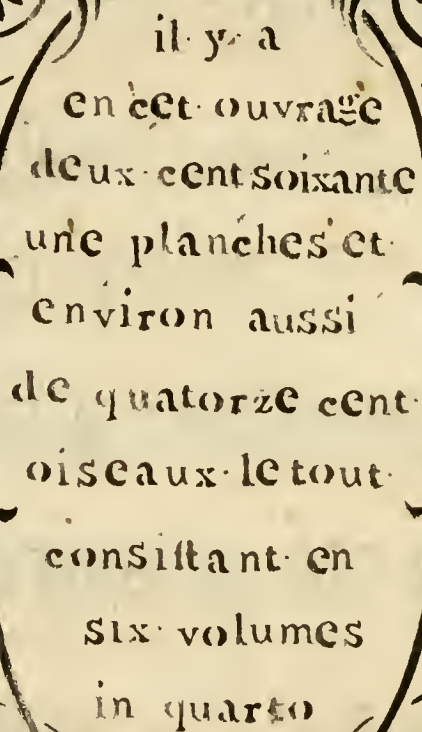 il y a
en cet ouvrage
deux cent soixante
une planches et
environ aussi
de quatorze cent
oiseaux le tout
consistant en
six volumes
in quarto